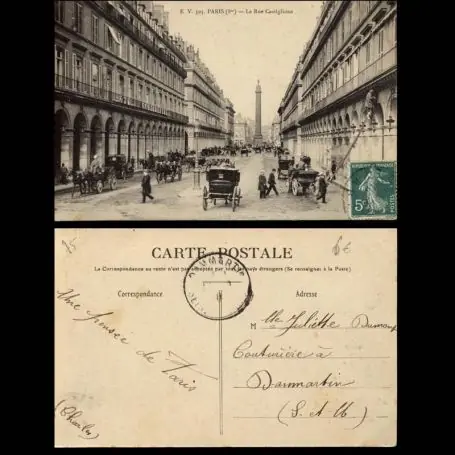 E. V. 505. PARIS (Ier) — La Rue Castiglione
5c
CARTE POSTALE
La Correspondance au recto n'est pas acceptée par tous les pays étrangers (Se renseigner à la Poste)
Correspondance
Adresse
DAMMARTIN
Une pensée de Paris
(Charles)
M lle Juliette Dumont
Couturière à
Dammartin
(S. et M)